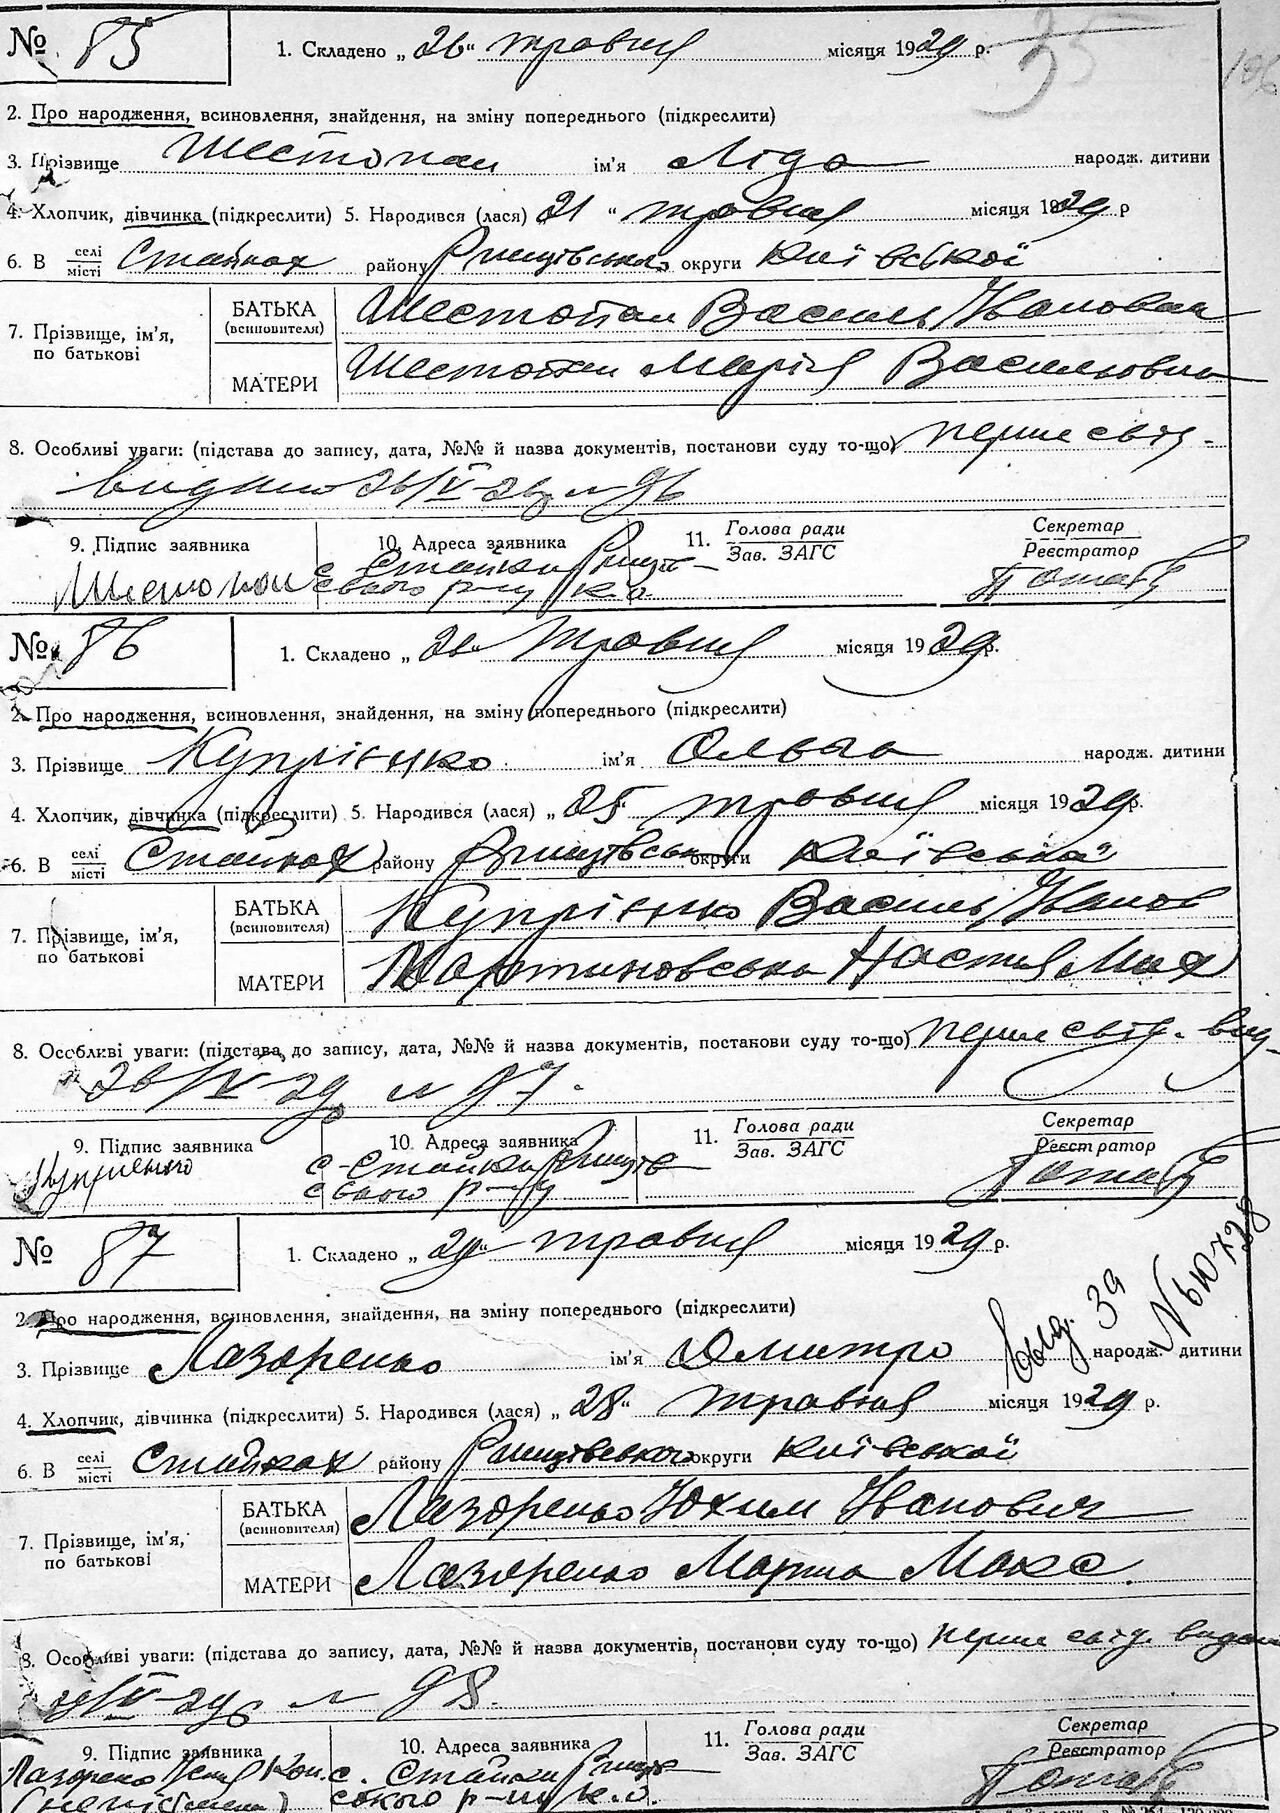 № 85 1. Складено „ 26 " травня місяця 1929 р. 35
2. Про народження, всиновлення, знайдення, на зміну попереднього (підкреслити)
3. Прізвище Шестопал ім'я Ліда народж. дитини
4. Хлопчик, дівчинка (підкреслити) 5. Народився (лася) 21 " травня місяця 1929 р
6. В селі/місті Стайках району Ржищівськ. округи Київської
7. Прізвище, ім'я, по батькові
БАТЬКА (всиновителя) Шестопал Василь Іванович
МАТЕРИ Шестопал Марія Василювна
8. Особливі уваги: (підстава до запису, дата, №№ й назва документів, постанови суду то-що) перше свід.
видано 26/V-29 № 96
9. Підпис заявника 10. Адреса заявника 11. Голова ради/Зав. ЗАГС Секретар/Реєстратор
Шестопал с. Стайки Ржищів-
ського р-ну К.о.
№ 86 1. Складено „ 26 " травня місяця 1929 р.
2. Про народження, всиновлення, знайдення, на зміну попереднього (підкреслити)
3. Прізвище Купрієнко ім'я Ольга народж. дитини
4. Хлопчик, дівчинка (підкреслити) 5. Народився (лася) „ 25 " травня місяця 1929 р.
6. В селі/місті Стайках району Ржищівськ. округи Київської
7. Прізвище, ім'я, по батькові
БАТЬКА (всиновителя) Купрієнко Василь Іванов
МАТЕРИ Мартиновська Настя Мих
8. Особливі уваги: (підстава до запису, дата, №№ й назва документів, постанови суду то-що) перше свід. вид-
26/V-29 № 97.
9. Підпис заявника 10. Адреса заявника 11. Голова ради/Зав. ЗАГС Секретар/Реєстратор
Куприенко с. Стайки Ржищів-
ського р-ну
№ 87 1. Складено „ 29 " травня місяця 1929 р.
2. Про народження, всиновлення, знайдення, на зміну попереднього (підкреслити)
3. Прізвище Лазоренко ім'я Дмитро народж. дитини
4. Хлопчик, дівчинка (підкреслити) 5. Народився (лася) „ 28 " травня місяця 1929 р.
6. В селі/місті Стайках району Ржищівського округи Київської
7. Прізвище, ім'я, по батькові
БАТЬКА (всиновителя) Лазоренко Юхим Іванович
МАТЕРИ Лазоренко Марина Макс.
8. Особливі уваги: (підстава до запису, дата, №№ й назва документів, постанови суду то-що) перше свід. видан
29/V-29 № 98.
9. Підпис заявника 10. Адреса заявника 11. Голова ради/Зав. ЗАГС Секретар/Реєстратор
Лазоренко с. Стайки Ржищів-
ського р-ну К.о.